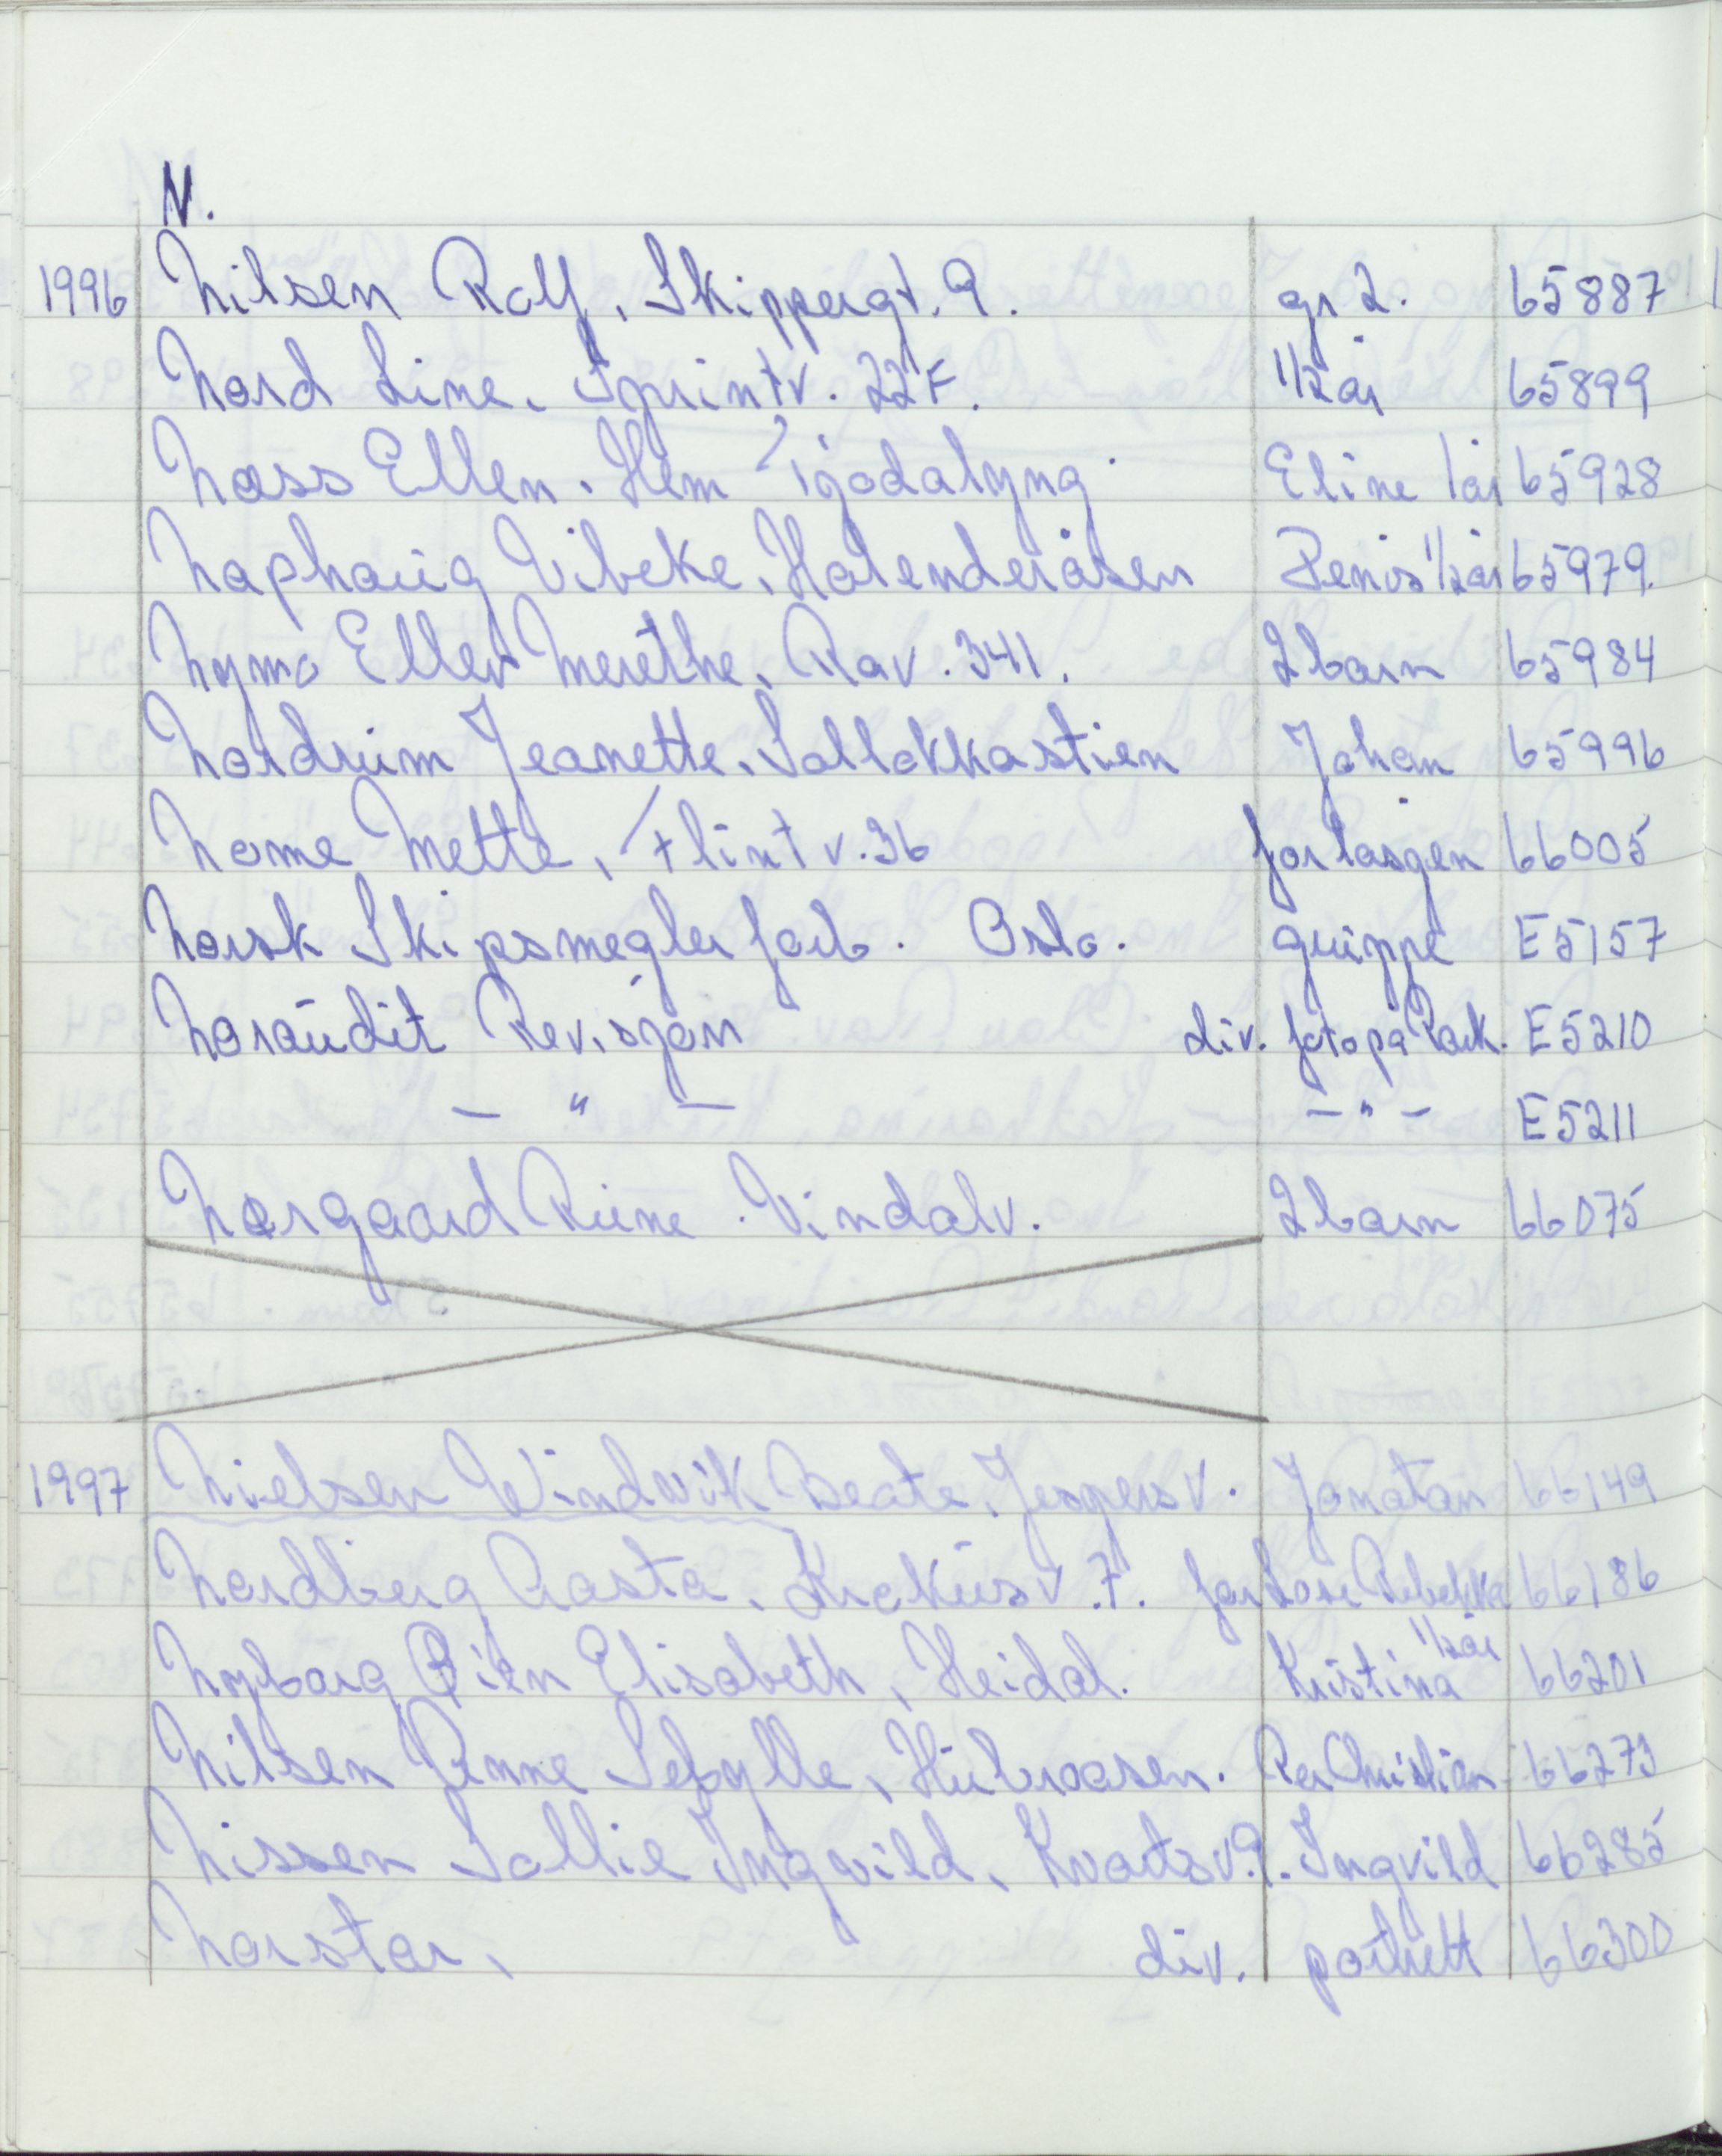 N.
1996 Nilsen Rolf, Skippergt. 9. gr 2. 65887
Nord Line, Sprintv. 22F. 1/2 år 65899
Næss Ellen. Hem Tjodalyng Eline 1 år 65928
Naphaug Vibeke, Holenderåsen 1/2 år 65979.
Nymo Ellen Merethe, Rav. 341. 2 barn 65984
Nordrum Jeanette. Sollokkastien Johan 65996
Nome Mette, Flintv. 36 forlovgen 66005
Norsk Skipsmegler forb. Oslo. gruppe E5157
Noraudit Revisjon div. foto på Park. E5210
— " — — " — E5211
Nørgaard Rune. Vindalv. 2 barn 66075
1997 Nielsen Windvik Beate, Jespersv. Jonatan 66149
Nordberg Aasta, Krokusv. 7. for Lone Rebekka 66186
Nyborg Øien Elisabeth, Heidal. Kristina 1/2 år 66201
Nilsen Anne Sebylle, Hubroåsen. Per Christian 66273
Nissen Sollie Ingvild, Kvartsv. 9. Ingvild 66285
Norstar, div. portrett 66300